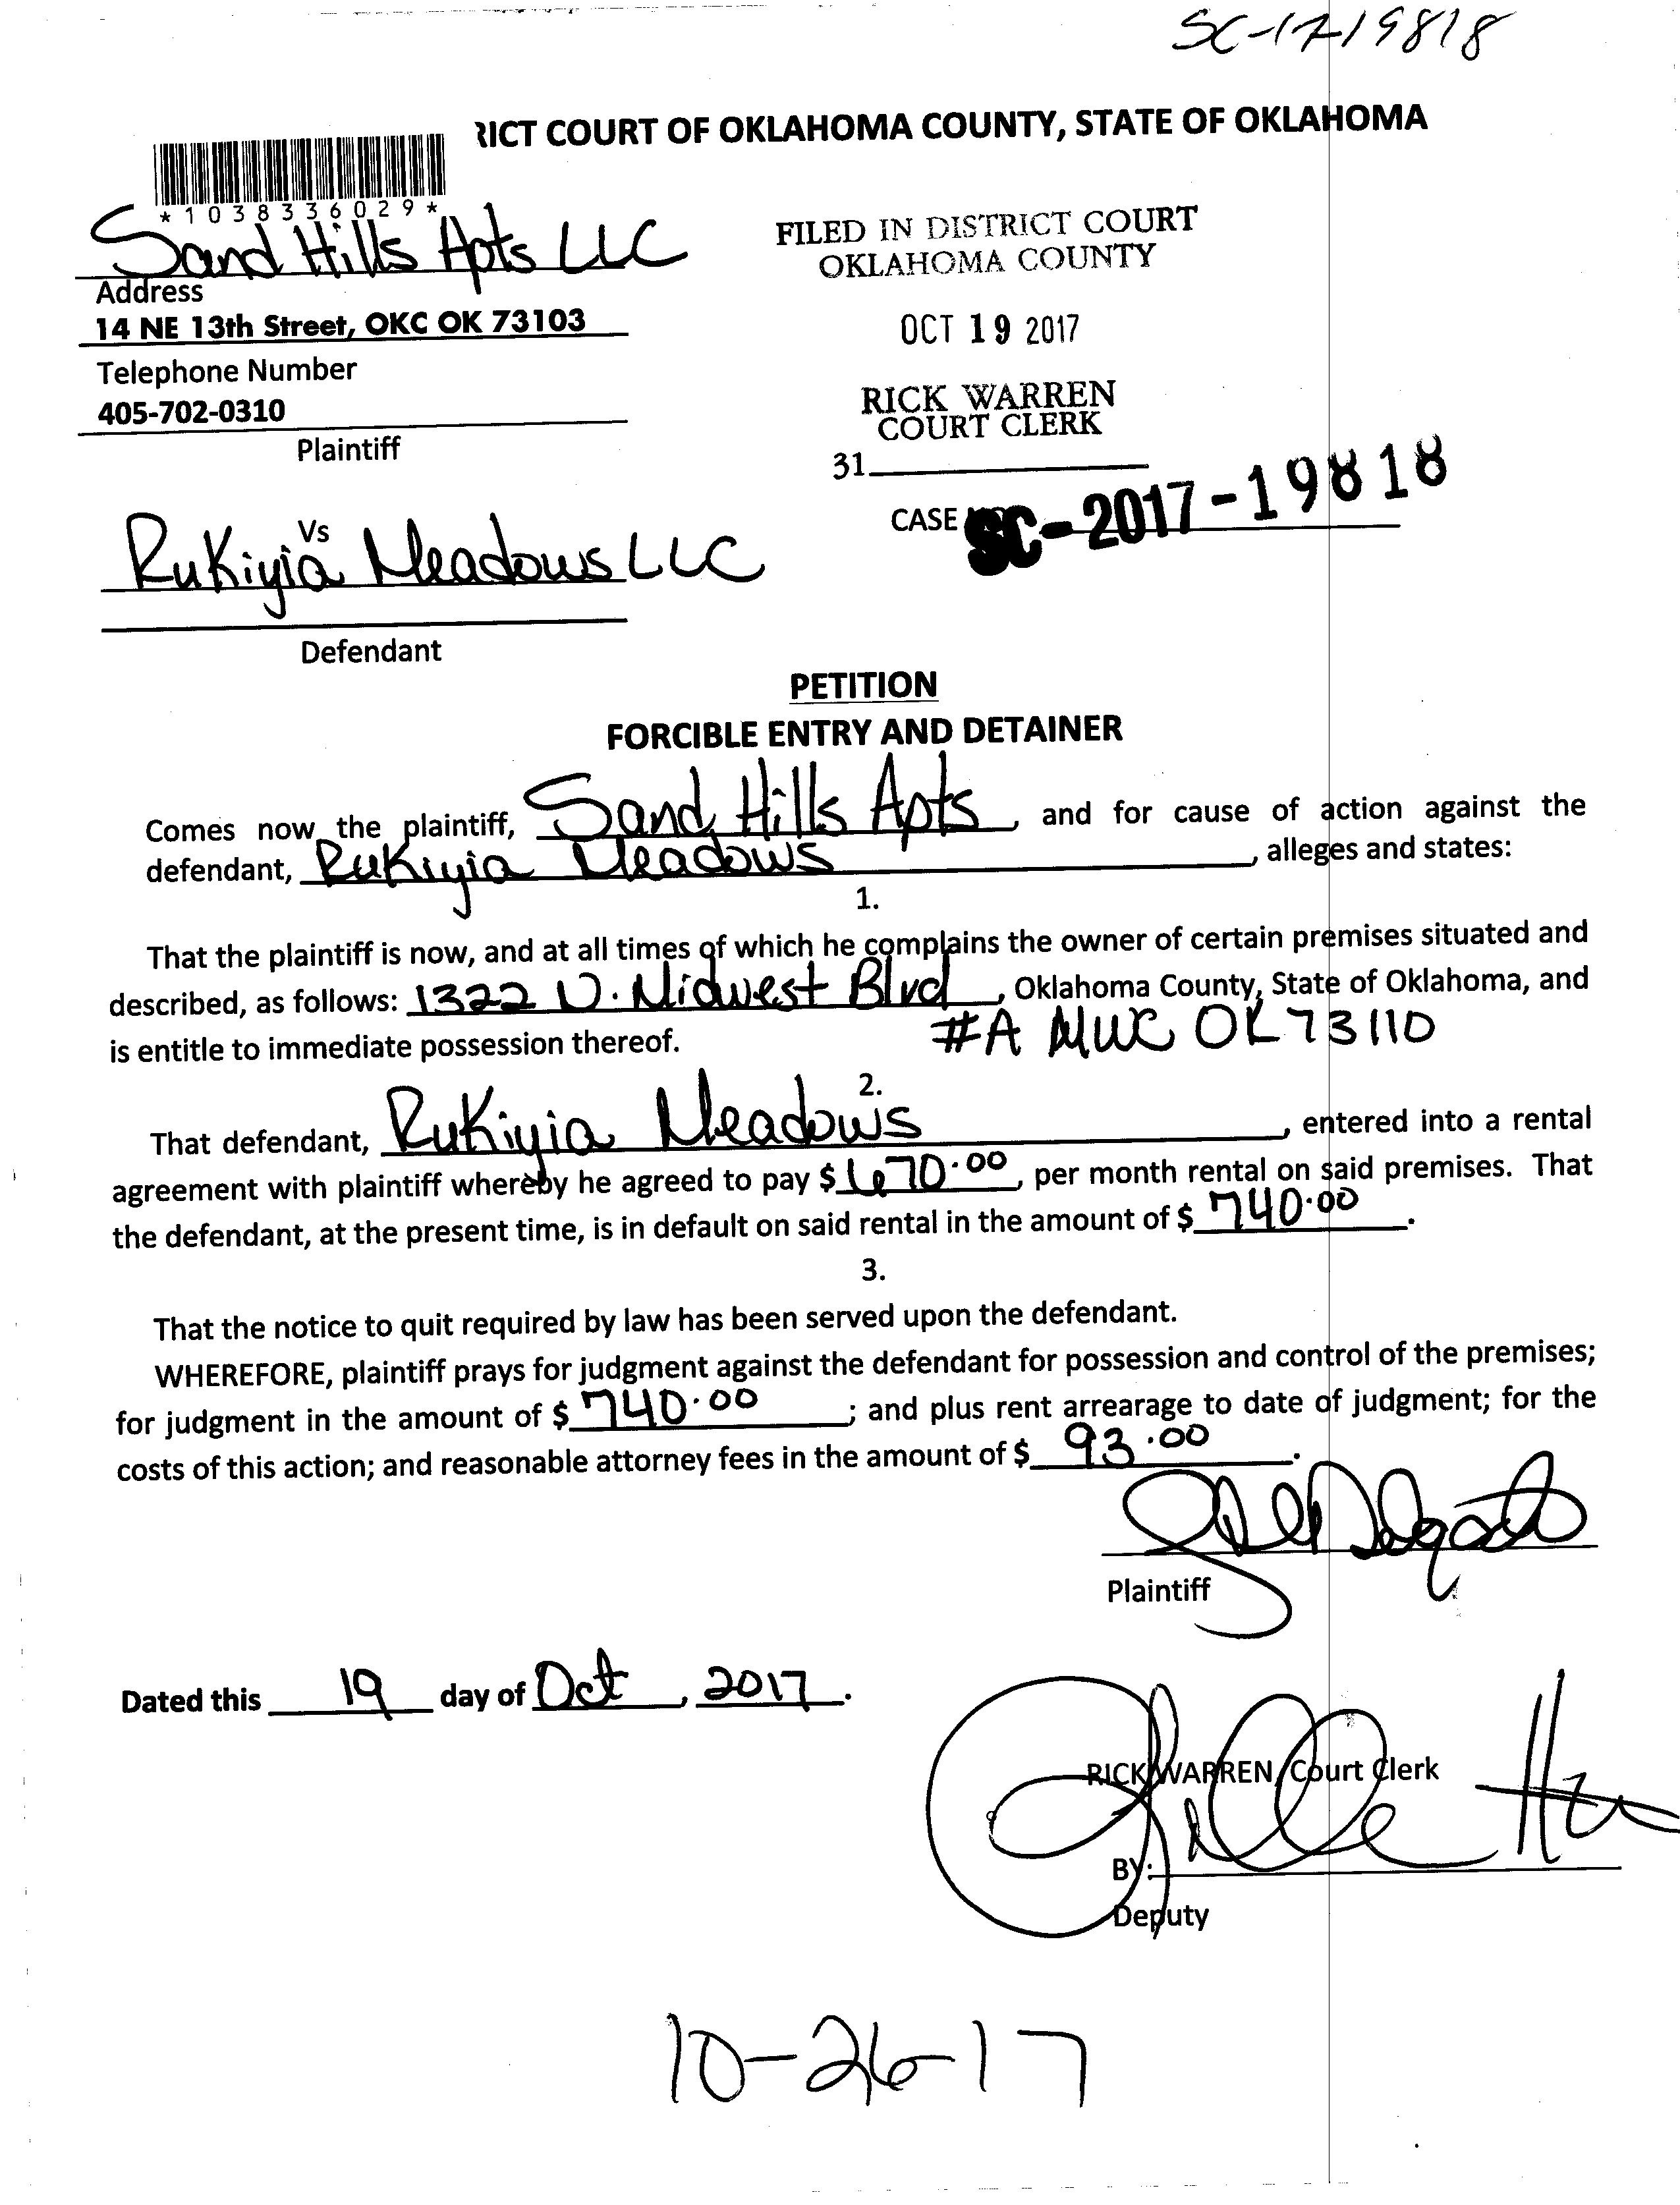 SC-17-19818
RICT COURT OF OKLAHOMA COUNTY, STATE OF OKLAHOMA
*1038336029*
Sand Hills Apts LLC
Address
14 NE 13th Street, OKC OK 73103
Telephone Number
405-702-0310
Plaintiff
FILED IN DISTRICT COURT
OKLAHOMA COUNTY
OCT 19 2017
RICK WARREN
COURT CLERK
31
CASE SC-2017-19818
Vs
Rukiyia Meadows LLC
Defendant
PETITION
FORCIBLE ENTRY AND DETAINER
Comes now the plaintiff, Sand Hills Apts, and for cause of action against the
defendant, Rukiyia Meadows, alleges and states:
1.
That the plaintiff is now, and at all times of which he complains the owner of certain premises situated and
described, as follows: 1322 N. Midwest Blvd, Oklahoma County, State of Oklahoma, and
is entitle to immediate possession thereof. #A MWC OK 73110
2.
That defendant, Rukiyia Meadows, entered into a rental
agreement with plaintiff whereby he agreed to pay $670.00, per month rental on said premises. That
the defendant, at the present time, is in default on said rental in the amount of $ 740.00.
3.
That the notice to quit required by law has been served upon the defendant.
WHEREFORE, plaintiff prays for judgment against the defendant for possession and control of the premises;
for judgment in the amount of $ 740.00; and plus rent arrearage to date of judgment; for the
costs of this action; and reasonable attorney fees in the amount of $ 93.00.
Plaintiff
Dated this 19 day of Oct, 2017.
RICK WARREN, Court Clerk
BY:
Deputy
10-26-17